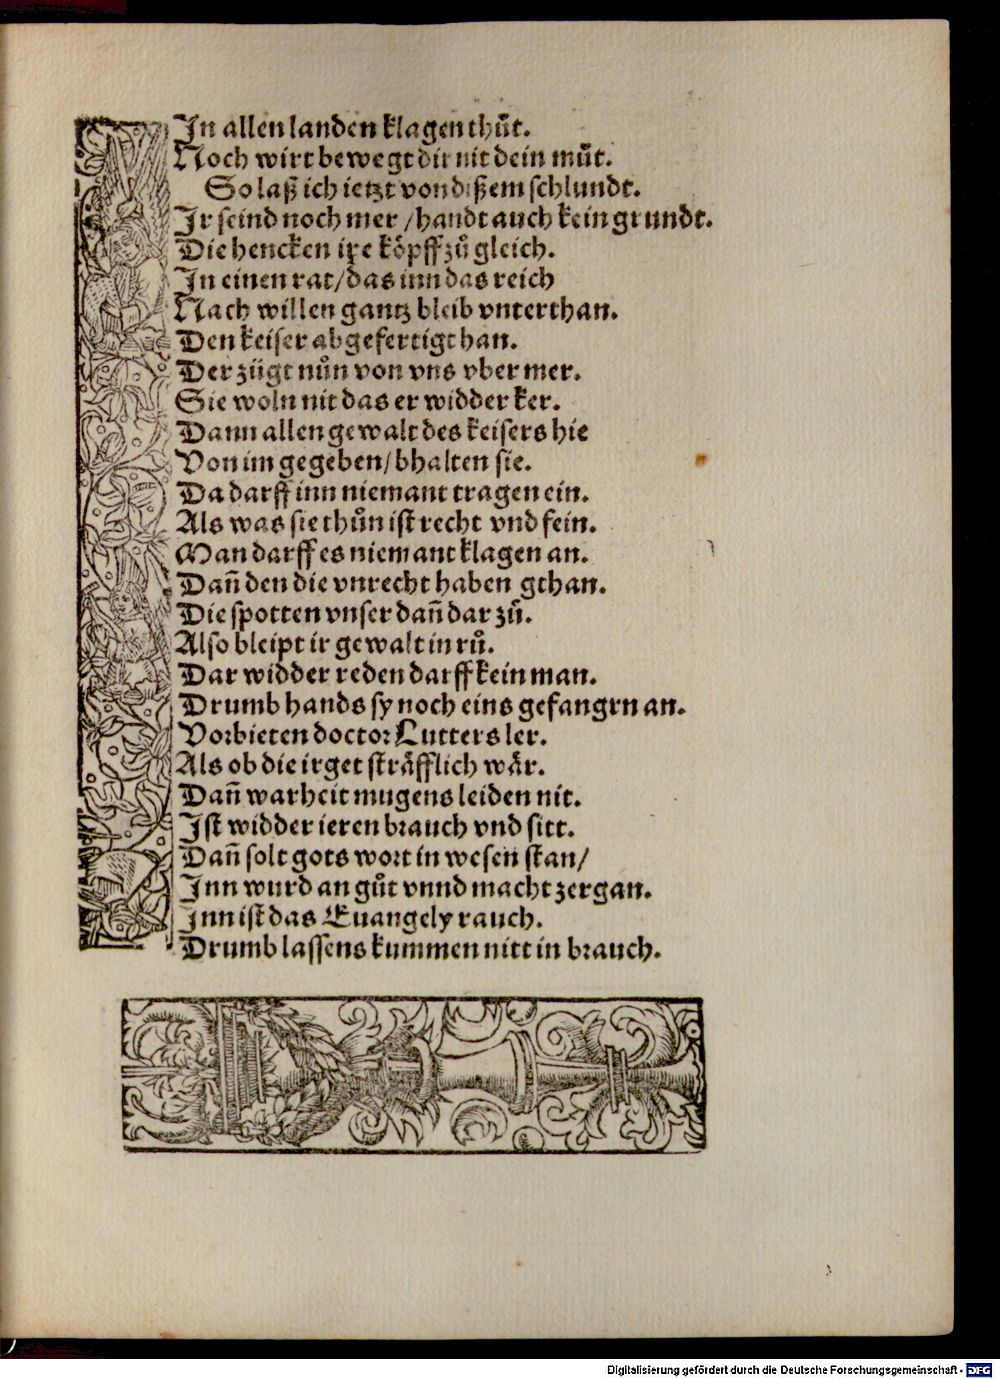 In allen landen klagen thůt.
Noch wirt bewegt dir nit dein můt.
So laß ich ietzt von dißem schlundt.
Ir seind noch mer / handt auch kein grundt.
Die hencken ire köpff zů gleich.
In einen rat / das inn das reich
Nach willen gantz bleib vnterthan.
Den keiser abgefertigt han.
Der zügt nůn von vns vber mer.
Sie woln nit das er widder ker.
Dann allen gewalt des keisers hie
Von im gegeben / bhalten sie.
Da darff inn niemant tragen ein.
Als was sie thůn ist recht vnd fein.
Man darff es niemant klagen an.
Dañ den die vnrecht haben gthan.
Die spotten vnser dañ dar zů.
Also bleipt ir gewalt in rů.
Dar widder reden darff kein man.
Drumb hands sy noch eins gefangrn an.
Vorbieten doctor Lutters ler.
Als ob die irget sträfflich wär.
Dañ warheit mugens leiden nit.
Ist widder ieren brauch vnd sitt.
Dañ solt gots wort in wesen stan /
Inn wurd an gůt vnnd macht zergan.
Inn ist das Euangely rauch.
Drumb lassens kummen nitt in brauch.
Digitalisierung gefördert durch die Deutsche Forschungsgemeinschaft - DFG